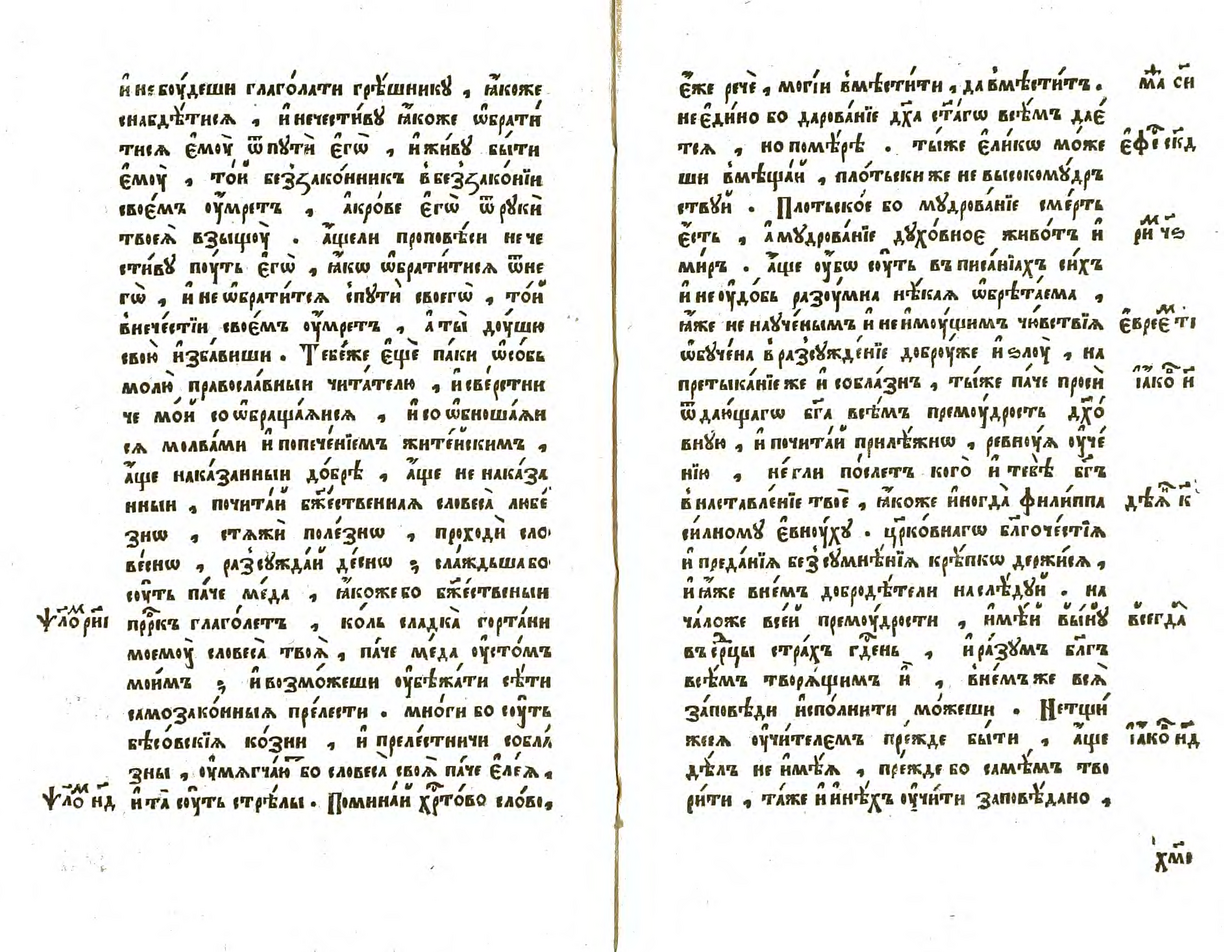 и҆ не боу́деши глаго́лати грѣ́шникꙋ , ꙗ҆́коже
снабдѣ́тисѧ , и҆ нечести́вꙋ ꙗ҆́коже ѡ҆брати́
тисѧ є҆моу̀ ѿ пꙋтѝ є҆гѡ̀ , и҆ жи́вꙋ бы́ти
є҆моу̀ , то́й беззако́нникъ в беззако́нїи
свое́мъ оу҆́мретъ , а҆ кро́ве є҆гѡ̀ ѿ рꙋкѝ
твоеѧ̀ взыщоу̀ . а҆́щели проповѣ́си нече
сти́вꙋ поу́ть є҆гѡ̀ , ꙗ҆́кѡ ѡ҆брати́тисѧ ѿ не
гѡ̀ , и҆ не ѡ҆брати́тсѧ с пꙋтѝ своегѡ̀ , то́й
в нече́стїи свое́мъ оу҆́мретъ , а҆ ты̀ доу́шю
свою̀ и҆зба́виши . Тебе́же є҆щѐ па́ки ѡ҆со́бь
молю̀ правосла́вныи чита́телю , и҆ све́рстни
че мо́й со ѡ҆браща́ѧисѧ , и҆ со ѡ҆бноша́ѧи
сѧ молва́ми и҆ попече́нїемъ жите́йскимъ ,
а҆́ще нака́занныи до́брѣ , а҆́ще не нака́за
нныи , почита́й бж҃е́ственнаѧ словеса̀ любе́
знѡ , стѧжѝ поле́знѡ , проходѝ сло
ве́снѡ , разсꙋжда́й де́снѡ ; сла́ждьша бо
соу́ть па́че ме́да , ꙗ҆́коже бо бж҃е́ственыи
ѱало рн҃і прⷪ҇ркъ глаго́летъ , ко́ль сладка̀ горта́ни
моемоу̀ словеса̀ твоѧ̀ , па́че ме́да оу҆сто́мъ
мои́мъ ; и҆ возмо́жеши оу҆бѣжа́ти сѣ́ти
самозако́нныѧ пре́лести . мно́ги бо соу́ть
бѣсо́вскїѧ ко́зни , и҆ преле́стничи собла́
зны , оу҆мѧгча́ю бо словеса̀ своѧ̀ па́че є҆ле́ѧ ,
ѱало нд и҆ та̀ соу́ть стрѣ́лы . Помина́й хрⷭ҇то́во сло́во ,
є҆́же речѐ , моги́й вмѣсти́ти , да вмѣсти́тъ . ма си
не є҆ди́но бо дарова́нїе дх҃а ст҃а́гѡ всѣ́мъ дае́
тсѧ , но по мѣ́рѣ . ты́же є҆ли́кѡ мо́же є҆фе скд
ши вмѣща́й , пло́тьски же не высокомꙋ́дръ
ствꙋй . Пло́тьско́е бо мꙋдрова́нїе сме́рть
є҆́сть , а҆ мꙋдрова́нїе дꙋхо́вное живо́тъ и҆ ри чѕ
ми́ръ . а҆́ще оу҆́бѡ соу́ть въ писа́нїахъ си́хъ
и҆ не оу҆до́бь разоу́мна нѣ́каѧ ѡ҆брѣта́ема ,
ꙗ҆́же не наꙋче́нымъ и҆ не и҆моу́щимъ чю́вствїѧ є҆вре́е ті
ѡ҆бꙋче́на в разсꙋжде́нїе доброу́же и҆ ѕлоу̀ , на
претыка́нїе же и҆ собла́знъ , ты́же па́че просѝ і҆ако и҆
ѿ даю́щагѡ бг҃а всѣ́мъ премоу́дрость дх҃о́
внꙋю , и҆ почита́й прилѣ́жнѡ , ревноу́ѧ оу҆че́
нїю , не́гли по́слетъ кого̀ и҆ тебѣ̀ бг҃ъ
в наставле́нїе твоѐ , ꙗ҆́коже и҆ногда̀ фили́ппа дѣѧ к
си́лномꙋ є҆вноу́хꙋ . цр҃ко́внагѡ бл҃гоче́стїѧ
и҆ преда́нїѧ без сꙋмнѣ́нїѧ крѣ́пкѡ держи́сѧ ,
и҆ ꙗ҆́же в не́мъ добродѣ́тели наслѣ́дꙋй . на
ча́ло же все́й премоу́дрости , и҆мѣ́й вы́нꙋ всегда̀
въ срⷣцы стра́хъ гдⷭ҇ень , и҆ ра́зꙋмъ бл҃гъ
всѣ́мъ творѧ́щимъ и҆̀ , в не́мъ же всѧ̀
за́повѣди и҆спо́лнити мо́жеши . Не тщи́
жесѧ оу҆чи́телемъ пре́жде бы́ти , а҆́ще і҆ако нд
дѣ́лъ не и҆мѣ́ѧ , пре́жде бо самѣ́мъ тво
ри́ти , та́же и҆ и҆нѣ́хъ оу҆чи́ти запо́вѣдано ,